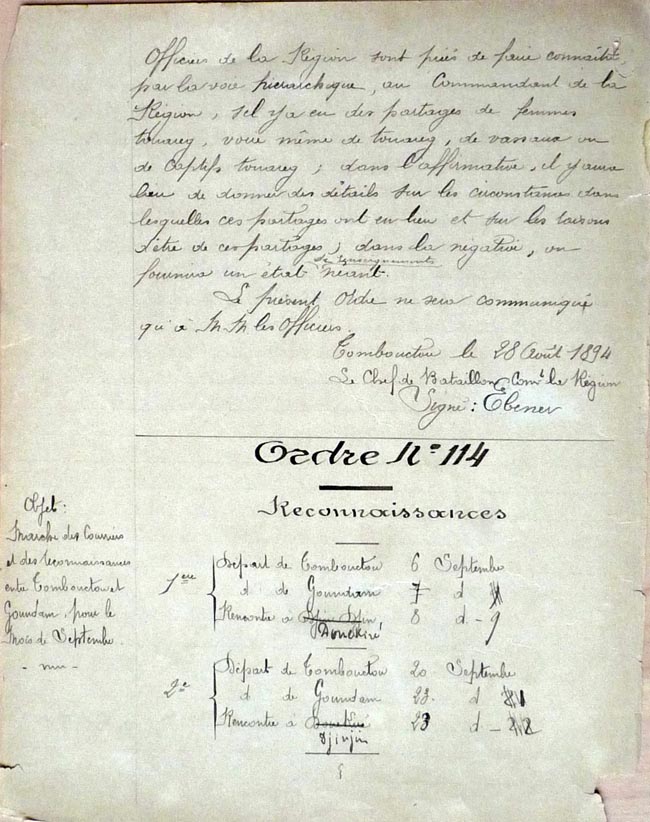 Officiers de la Région sont priés de faire connaître
par la voie hiérarchique, au Commandant de la
Région, s'il y a eu des partages de femmes
touareg, voire même de touareg, de vassaux ou
de captifs touareg ; dans l'affirmative, il y aura
lieu de donner des détails sur les circonstances dans
lesquelles ces partages ont eu lieu et sur les raisons
d'être de ces partages ; dans la négative, on
de renseignements
fournira un état néant.
Le présent Ordre ne sera communiqué
qu'à M.M. les Officiers.
Tombouctou le 28 Août 1894
Le Chef de Bataillon Comt la Région
Signé : Ebener
Ordre No 114
Reconnaissances
Objet :
Marche des Courriers
et des reconnaissances
entre Tombouctou et
Goundam pour le
Mois de Septembre.
1ère
Départ de Tombouctou 6 Septembre
d de Goundam 7 d
Rencontre à 8 d - 9
Douékiré
2e
Départ de Tombouctou 20 Septembre
d de Goundam 23. d
Rencontre à Douékiré 23 d -
Djinjin